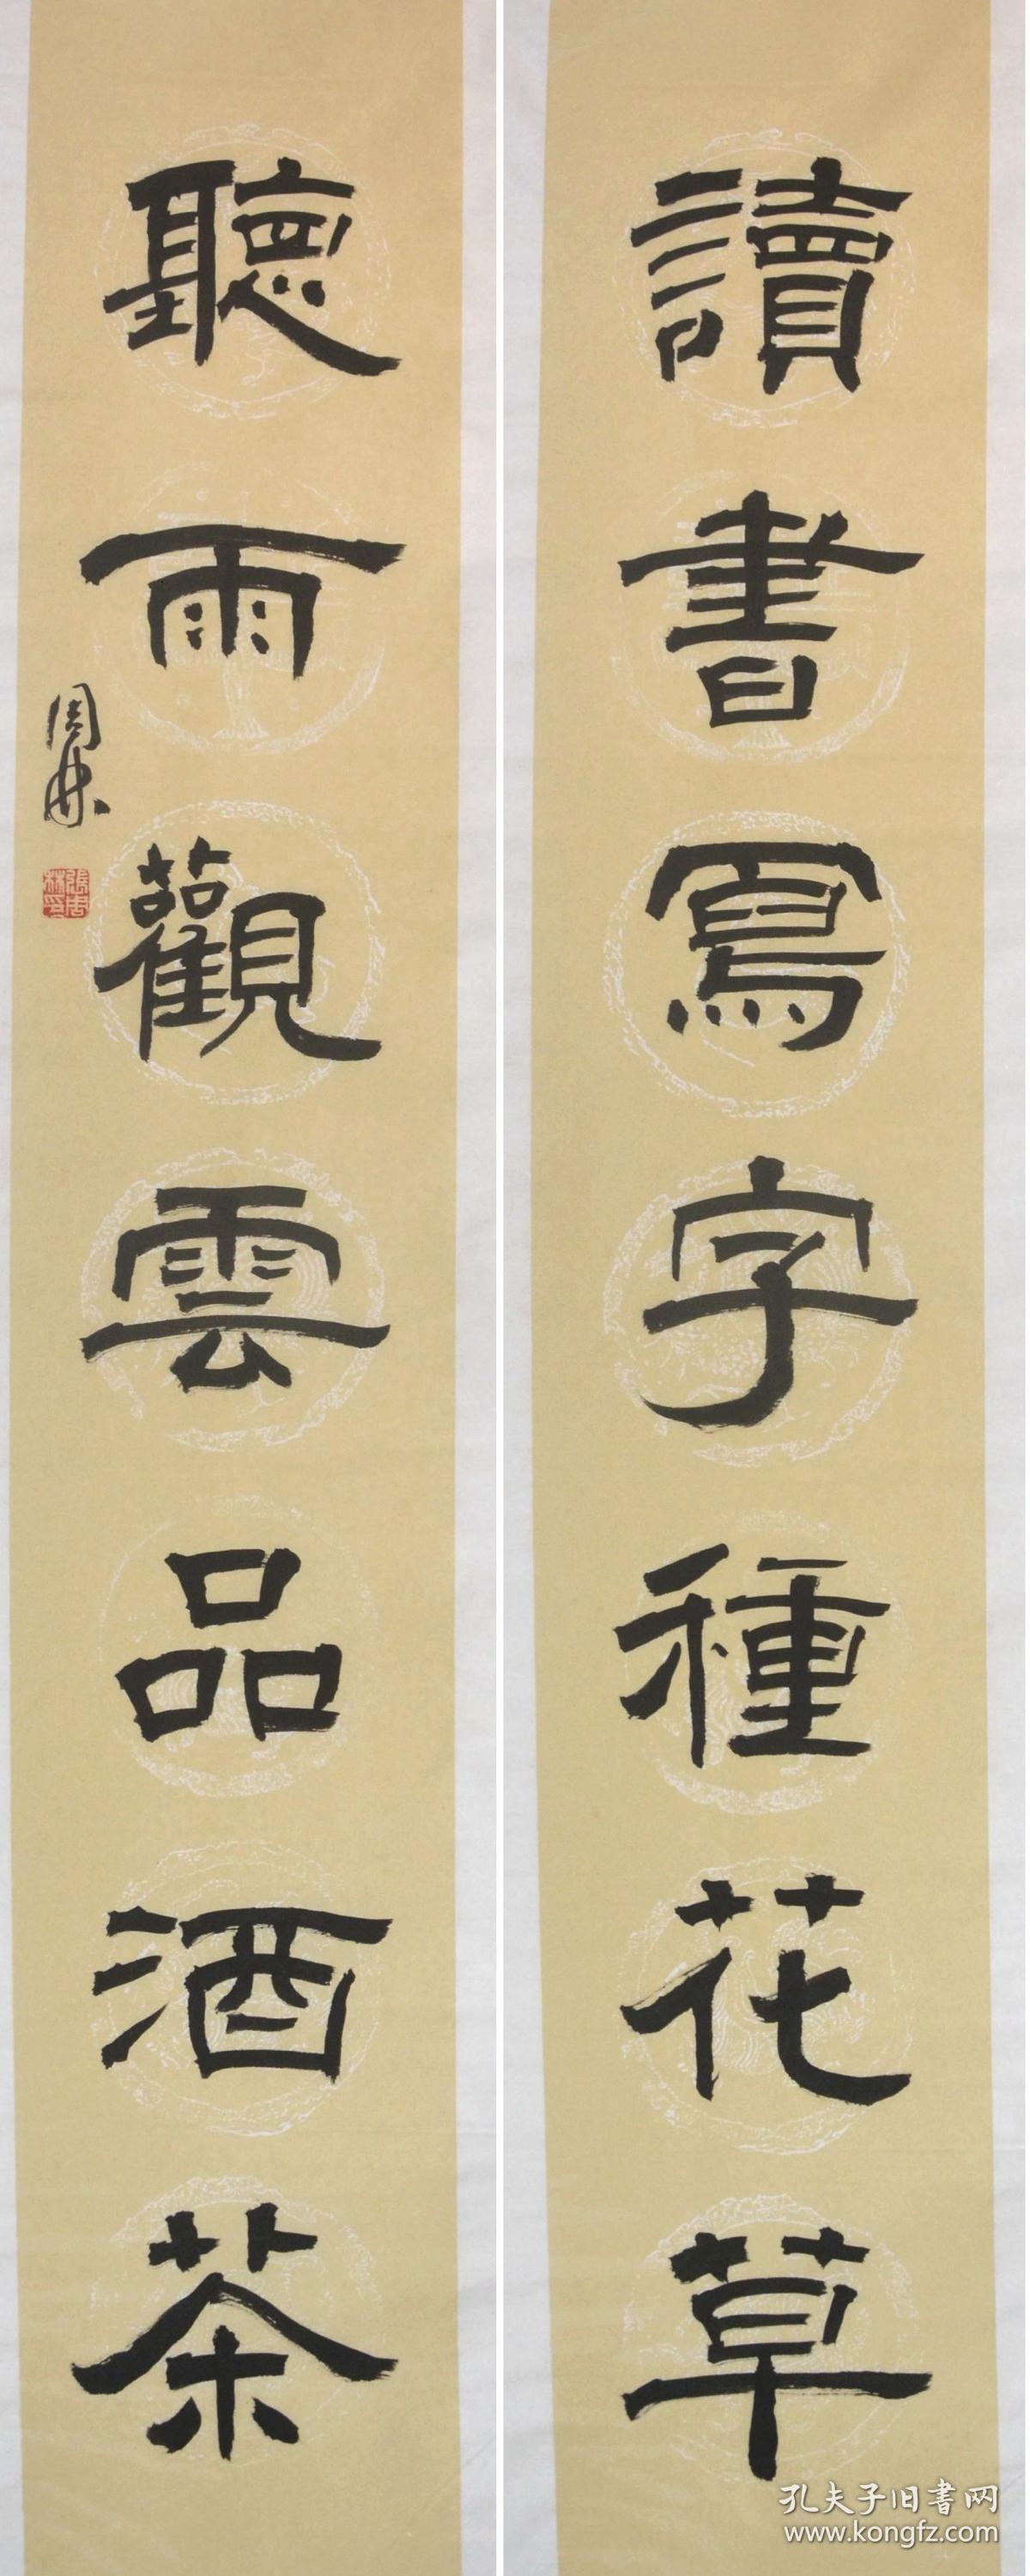 讀書寫字種花草
聽雨觀雲品酒茶
周林
張周林印
孔夫子旧書网
www.kongfz.com